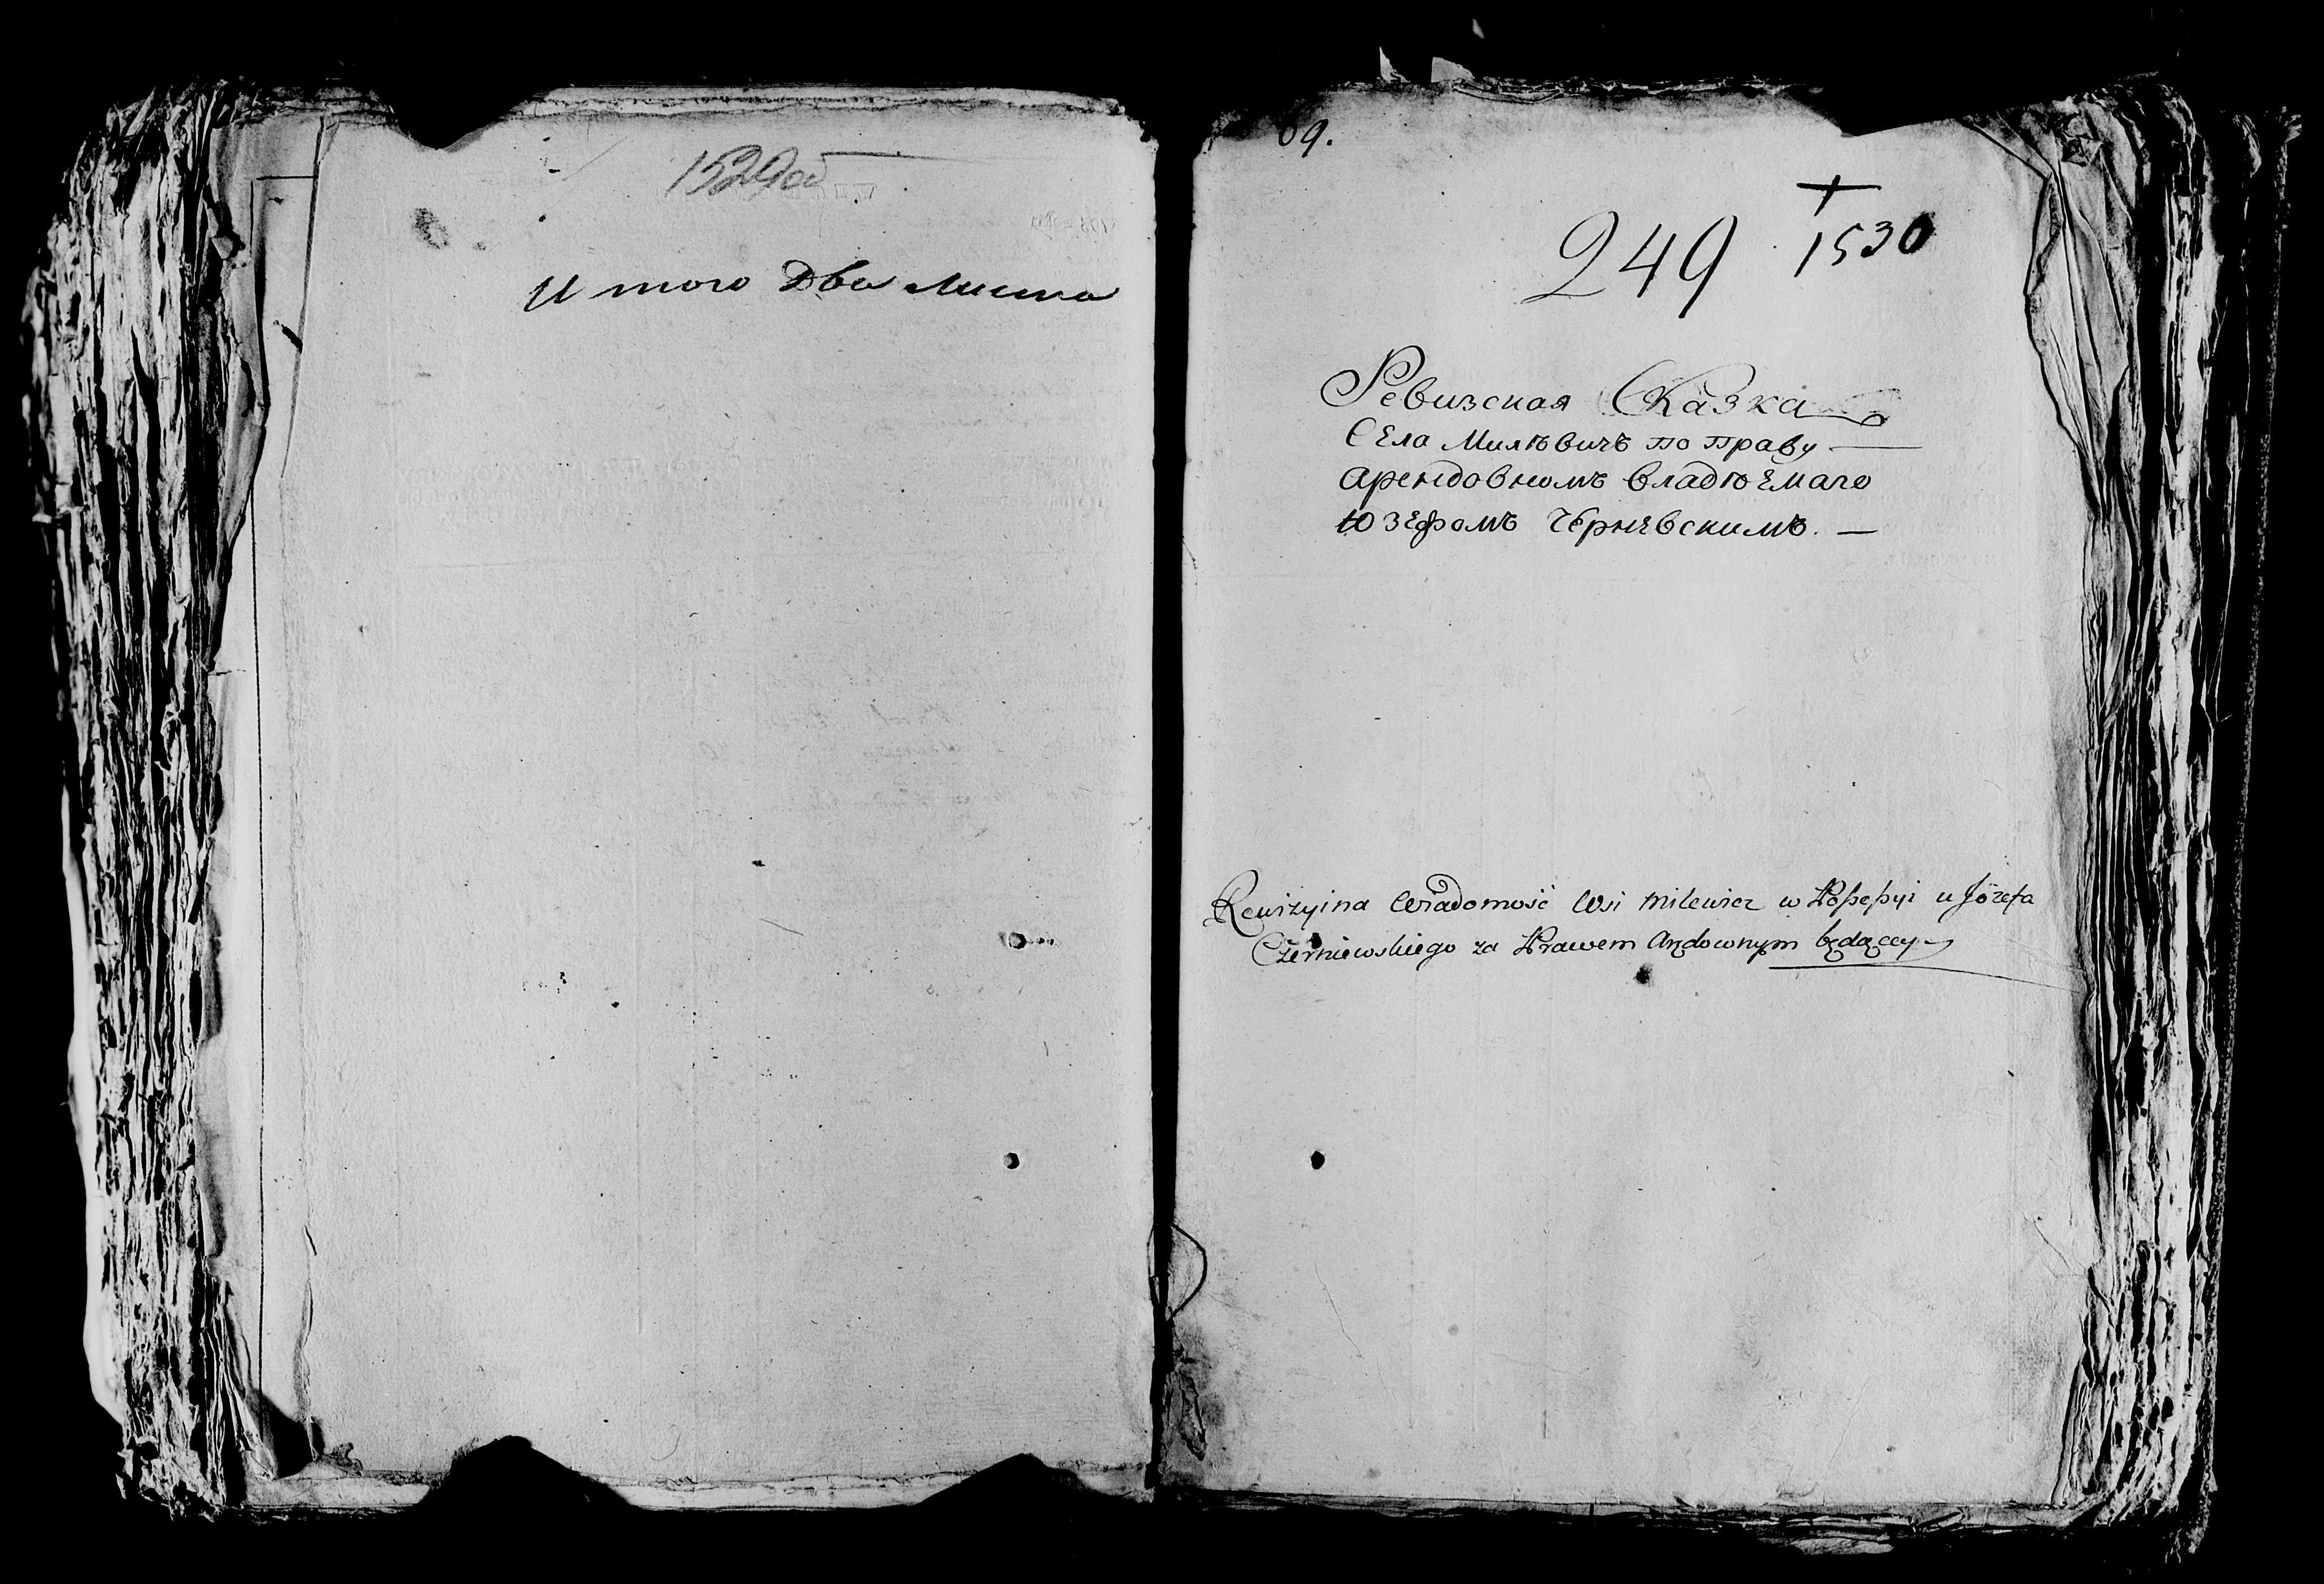 1529об
Итого Два Листа
69.
249 1530
Ревизская Сказка
Села Милѣвичъ по праву
арендовномъ владѣемаго
Юзефомъ Чернѣвскимъ. —
Rewizyina Wiadomość Wsi Milewicz w Poſseſsyi u Józefa
Czerniewskiego za Prawem Arędownym będącey